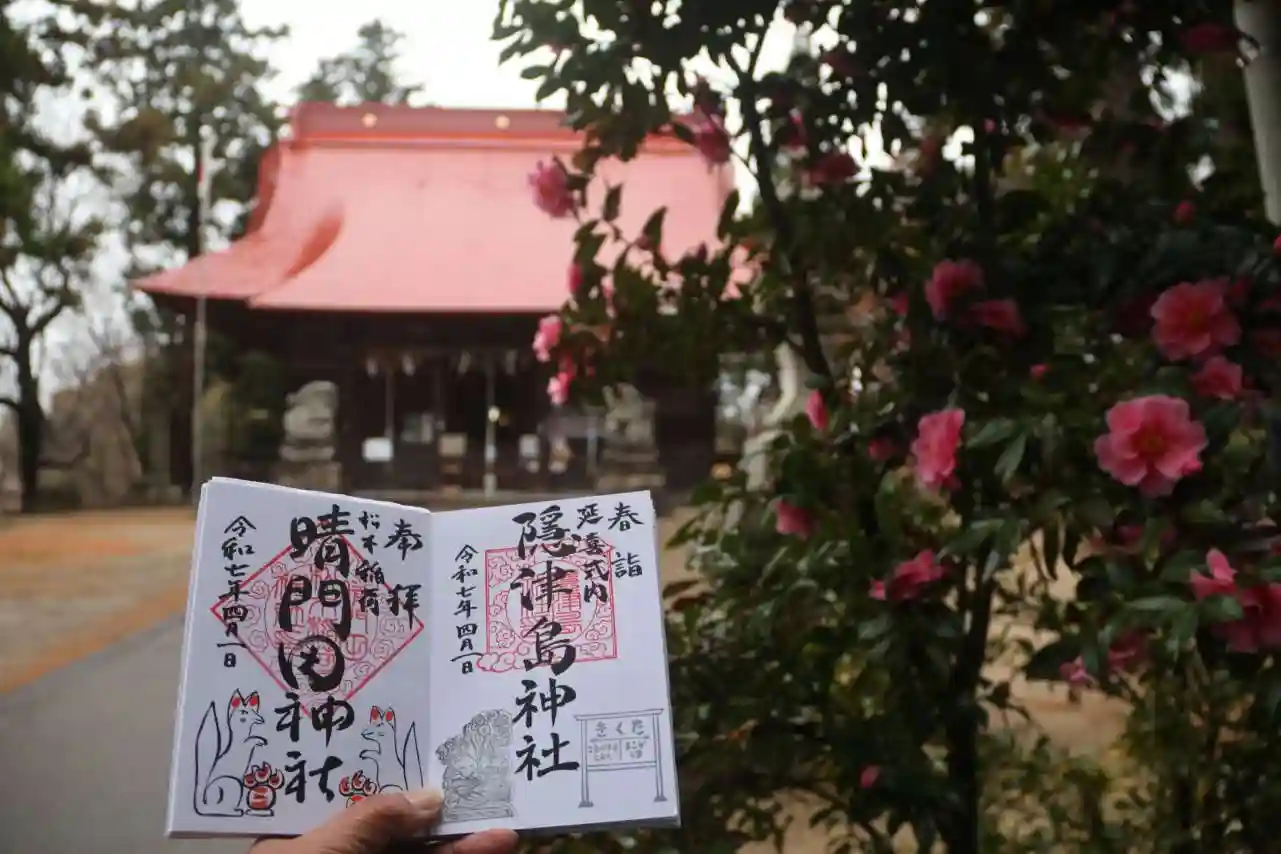 春詣
延喜式内
隠津島神社
令和七年四月一日
きくた
奉拝
松木稲荷
晴門田神社
令和七年四月一日